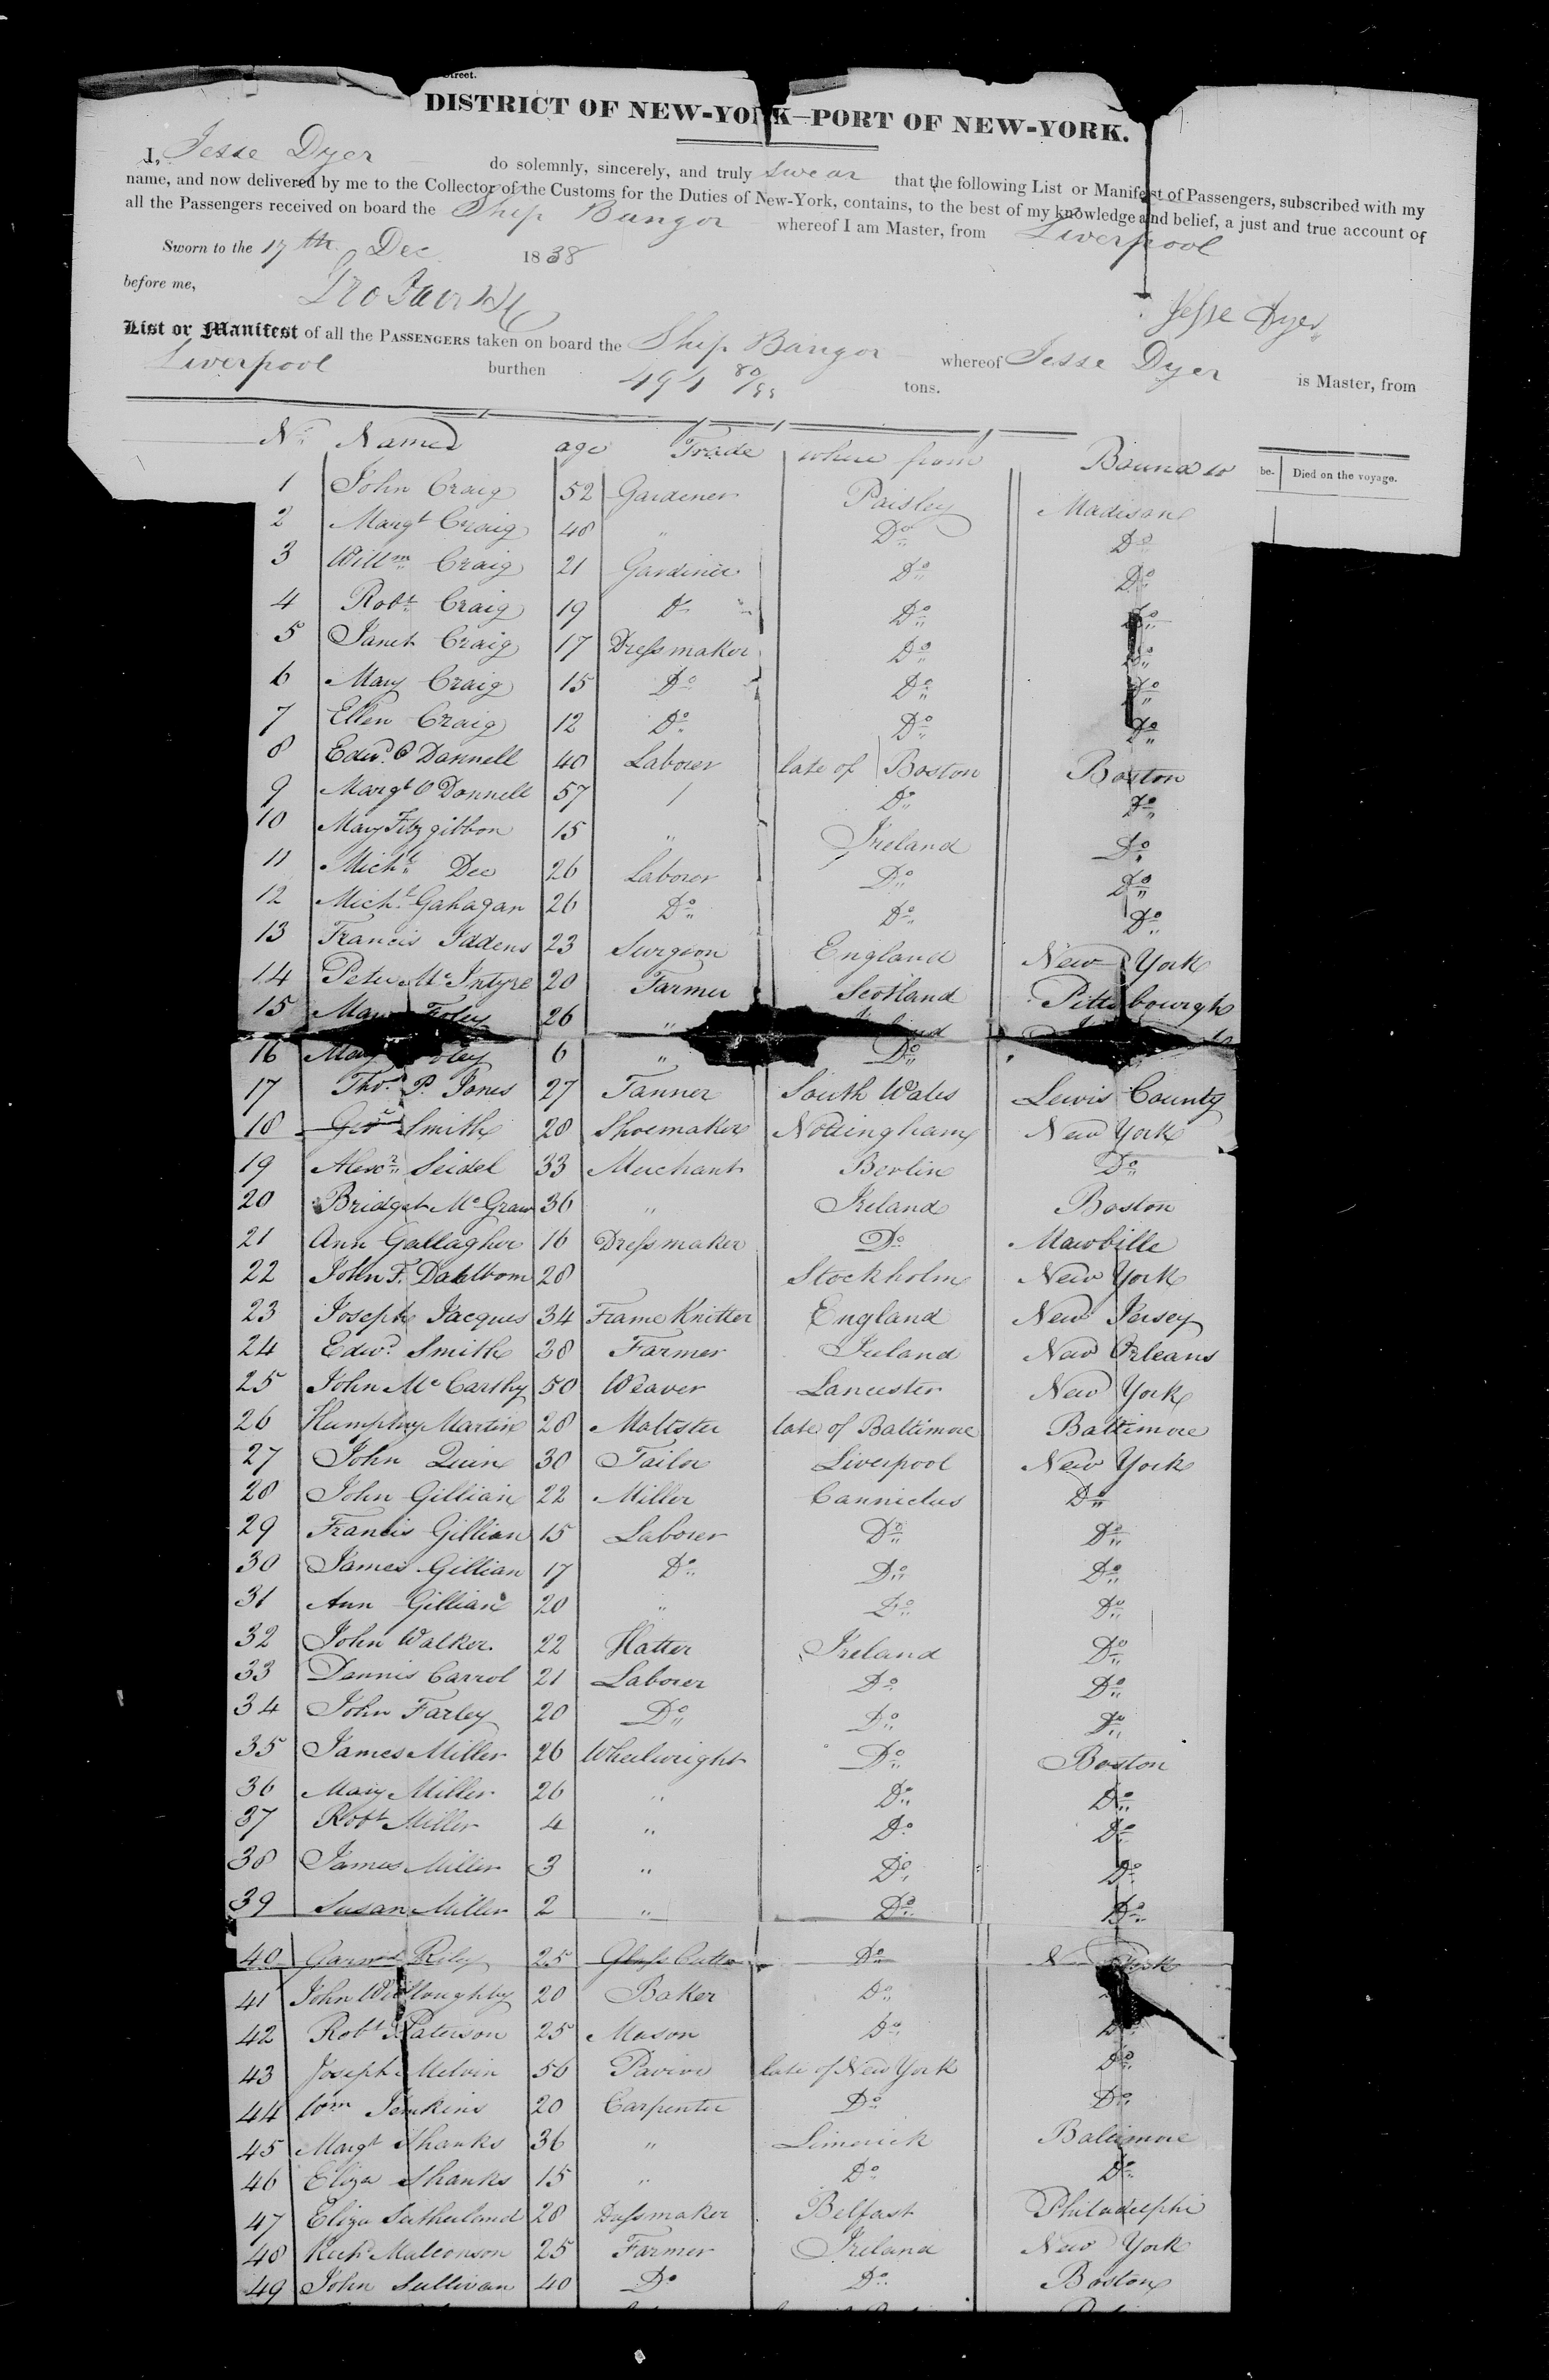 Street.
DISTRICT OF NEW-YORK—PORT OF NEW-YORK.
I, Jesse Dyer do solemnly, sincerely, and truly swear that the following List or Manifest of Passengers, subscribed with my
name, and now delivered by me to the Collector of the Customs for the Duties of New-York, contains, to the best of my knowledge and belief, a just and true account of
all the Passengers received on board the Ship Bangor whereof I am Master, from Liverpool
Sworn to the 17th Dec 1838
before me,
Jesse Dyer
List or Manifest of all the PASSENGERS taken on board the Ship Bangor whereof Jesse Dyer is Master, from
Liverpool burthen 494 80/95 tons.
No Names age Trade where from Bound to
be. Died on the voyage.
1 John Craig 52 Gardener Paisley Madison
2 Margt Craig 48 " Do Do
3 Willm Craig 21 Gardiner Do Do
4 Robt Craig 19 Do Do Do
5 Janet Craig 17 Dressmaker Do Do
6 Mary Craig 15 Do Do Do
7 Ellen Craig 12 Do Do Do
8 Edwd O Donnell 40 Laborer late of Boston Boston
9 Margt O Donnell 57 Do Do
10 Mary Fitzgibbon 15 " Ireland Do
11 Michl Dee 26 Laborer Do Do
12 Michl Gahagan 26 Do Do Do
13 Francis Iddens 23 Surgeon England New York
14 Peter Mc Intyre 20 Farmer Scotland Pittsbourgh
15 Mary Foley 26 "
16 Mary Foley 6 " Do
17 Thos P. Jones 27 Tanner South Wales Lewis County
18 Geo Smith 28 Shoemaker Nottingham New York
19 Alexr Seidel 33 Merchant Berlin Do
20 Bridget Mc Graw 36 " Ireland Boston
21 Ann Gallagher 16 Dressmaker Do Mawbille
22 John F. Dahlbom 28 Stockholm New York
23 Joseph Jacques 34 Frame Knitter England New Jersey
24 Edwd Smith 38 Farmer Ireland New Orleans
25 John Mc Carthy 50 Weaver Lancester New York
26 Humphry Martin 28 Maltster late of Baltimore Baltimore
27 John Quin 30 Tailor Liverpool New York
28 John Gillian 22 Miller Do
29 Francis Gillian 15 Laborer Do Do
30 James Gillian 17 Do Do Do
31 Ann Gillian 20 " Do Do
32 John Walker 22 Hatter Ireland Do
33 Dennis Carrol 21 Laborer Do Do
34 John Farley 20 Do Do Do
35 James Miller 26 Wheelwright Do Boston
36 Mary Miller 26 " Do Do
37 Robt Miller 4 " Do Do
38 James Miller 3 " Do Do
39 Susan Miller 2 " Do Do
40 Riley 25 Glass Cutter Do N York
41 John Willoughby 20 Baker Do
42 Robt Paterson 25 Mason Do Do
43 Joseph Melvin 56 late of New York Do
44 Wm Jenkins 20 Carpenter Do Do
45 Margt Shanks 36 " Limerick Baltimore
46 Eliza Shanks 15 " Do Do
47 Eliza Sutherland 28 Dressmaker Belfast Philadelphi
48 Richd Malconson 25 Farmer Ireland New York
49 John Sullivan 40 Do Do Boston